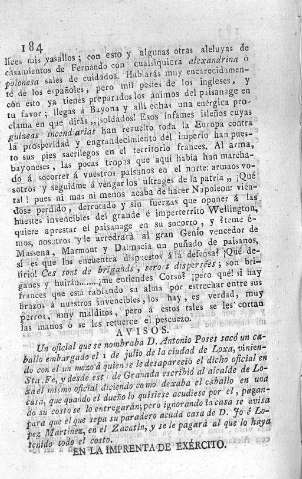 184
lices mis vasallos; con esto y algunas otras aleluyas de
casamientos de Fernando con cualsiquiera alexandrina o
polonesa sales de cuidados. Hablarás muy encarecidamen-
te de los españoles, pero mil pestes de los ingleses, y
con esto ya tienes preparados los ánimos del paisanage en
tu favor; llegas á Bayona y allí echas una enérgica pro-
clama en que dirás ¡soldados! Esos infames isleños cuyas
guineas incendiarias han resuelto toda la Europa contra
la prosperidad y engrandecimiento del imperio han pues-
to sus pies sacrilegos en el territorio francés. Al arma,
bayoneses, las pocas tropas que aquí habia han marcha-
do á socorrer á vuestros paisanos en el norte: armaos vo-
sotros y seguidme á vengar los ultrages de la patria
tal! pues ni mas ni menos acaba de hacer Napoleon
dose perdido, derrocado y sin fuerzas que oponer á las
huestes invencibles del grande é imperterrito Wellington,
quiere aprestar el paisanage en su socorro, y
mos, nosotros y le arredrará al gran Genio vencedor de
Massena, Marmont y Dalmacia un puñado de paisanos,
si es que los encuentra dispuestos á la defensa? ¡Qué de-
lirio! Ces sont de brigands,
gas y huirán ¿me entiendes Corso? ¡pero qué! si hay
frances que está rabiando su alma por estrechar entre sus
brazos á nuestros invencibles, los hay, es verdad, muy
perros, muy malditos, pero á estos tales se les cortan
las manos o se les retuerce el pescuezo.
AVISOS.
Un oficial que se nombraba D. Antonio Poses sacó un ca-
ballo embargado el 1 de julio de la ciudad de Loxa, vinien-
do con el un mozo á quien se le desapareció el dicho oficial en
Sta. Fe, y desde est de Granada escribió al alcalde de Lo-
xa el mismo oficial diciendo como dexaba el caballo en una
casa, que quando el dueño lo quisiese acudiese por el, pagan-
do su costo se lo entregarán; pero ignorando la casa se avisa
para que el que sepa su paradero acuda casa de D. José Lo-
pez Martinez, en el Zacatin, y se le pagará al que lo haya
tenido todo el costo.
EN LA IMPRENTA DE EXÉRCITO.